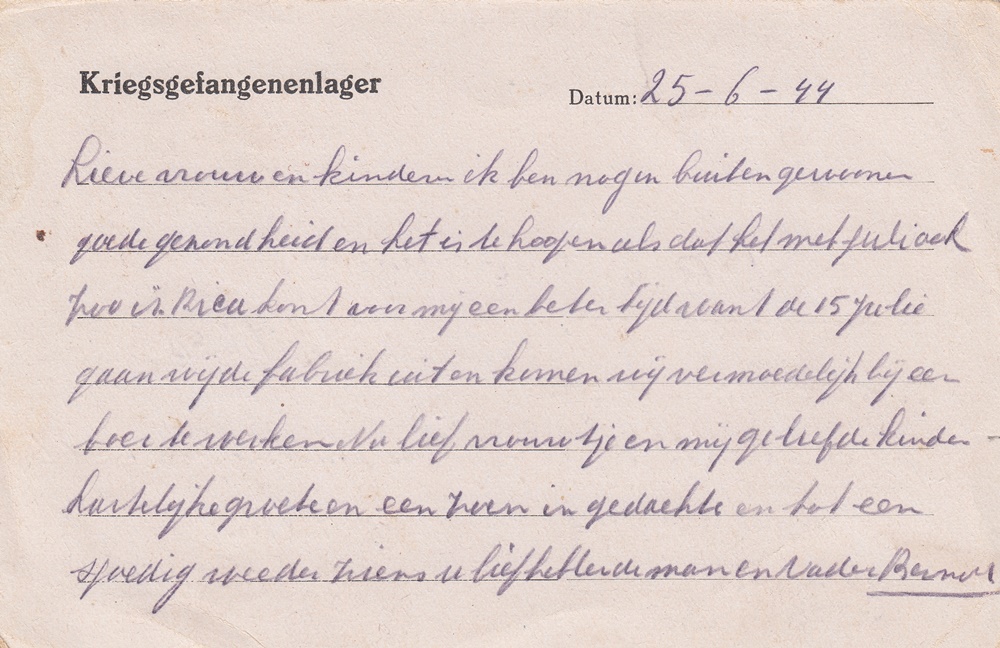 Kriegsgefangenenlager
Datum: 25-6-44
Lieve vrouw en kindern ik ben nog in buitengewoonen
goede gezondheid en het is te hoopen als dat het met Juli ook
zoo is. komt voor mij een beter tijd want de 15 Julie
gaan wij de fabriek uit en komen wij vermoedelijk bij een
boer te werken Nu lief vrouwtje en mij geliefde kinder
hartelijke groete en een zoen in gedachte en tot een
spoedig weeder ziens u liefhebbende man en Vader